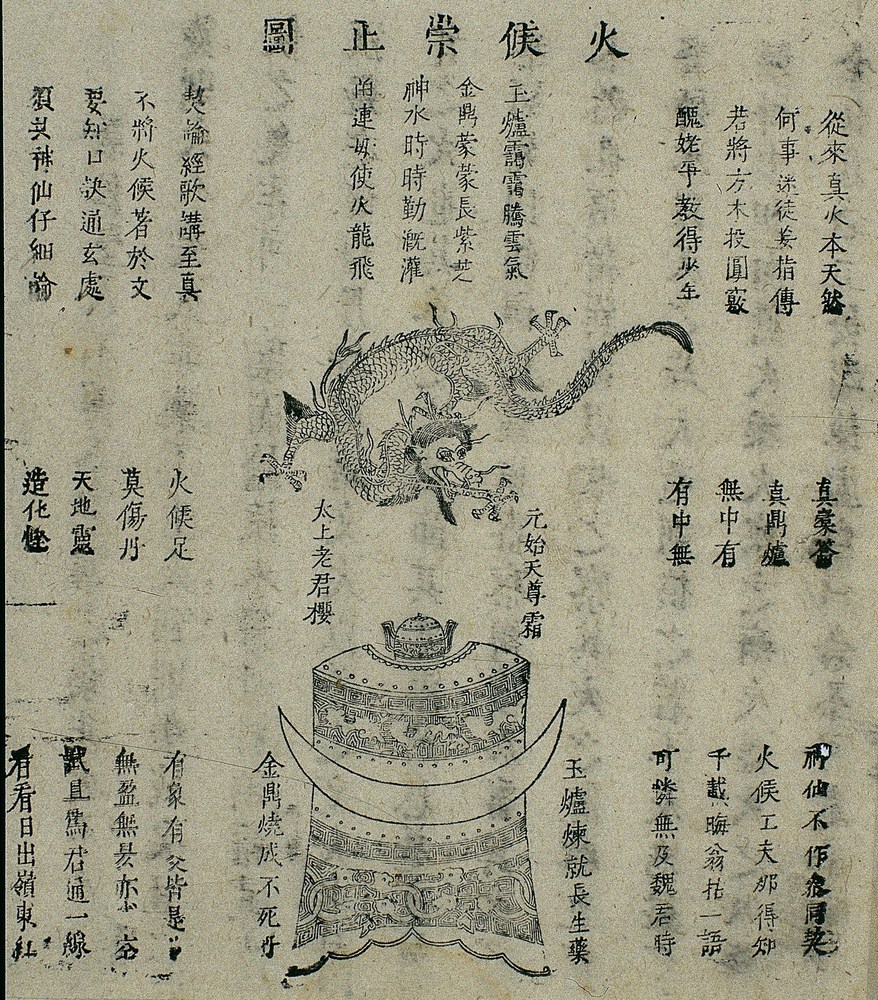 火候崇止圖
從來真火本天然
何事迷徒妄指傳
若將方木投圓竅
醜姥爭教得少年
玉爐靄靄騰雲氣
金鼎蒙蒙長紫芝
神水時時勤溉灌
留連毋使火龍飛
契論經歌講至真
不將火候著於文
要知口訣通玄處
須共神仙仔細論
真橐籥
真鼎爐
無中有
有中無
元始天尊霜
太上老君櫻
火候足
莫傷丹
天地靈
造化慳
神仙不作參同契
火候工夫那得知
千載晦翁拈一語
可憐無及魏君時
玉爐煉就長生藥
金鼎燒成不死丹
有象有爻皆是
無盈無昃亦 空
試且爲君通一線
看看日出嶺東紅